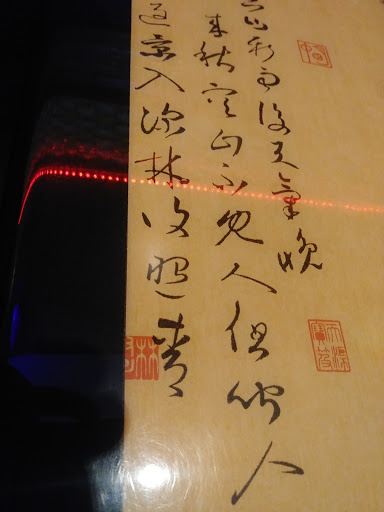 山新雨後天氣晚
来秋空山不見人但聞人
返景入深林復照青